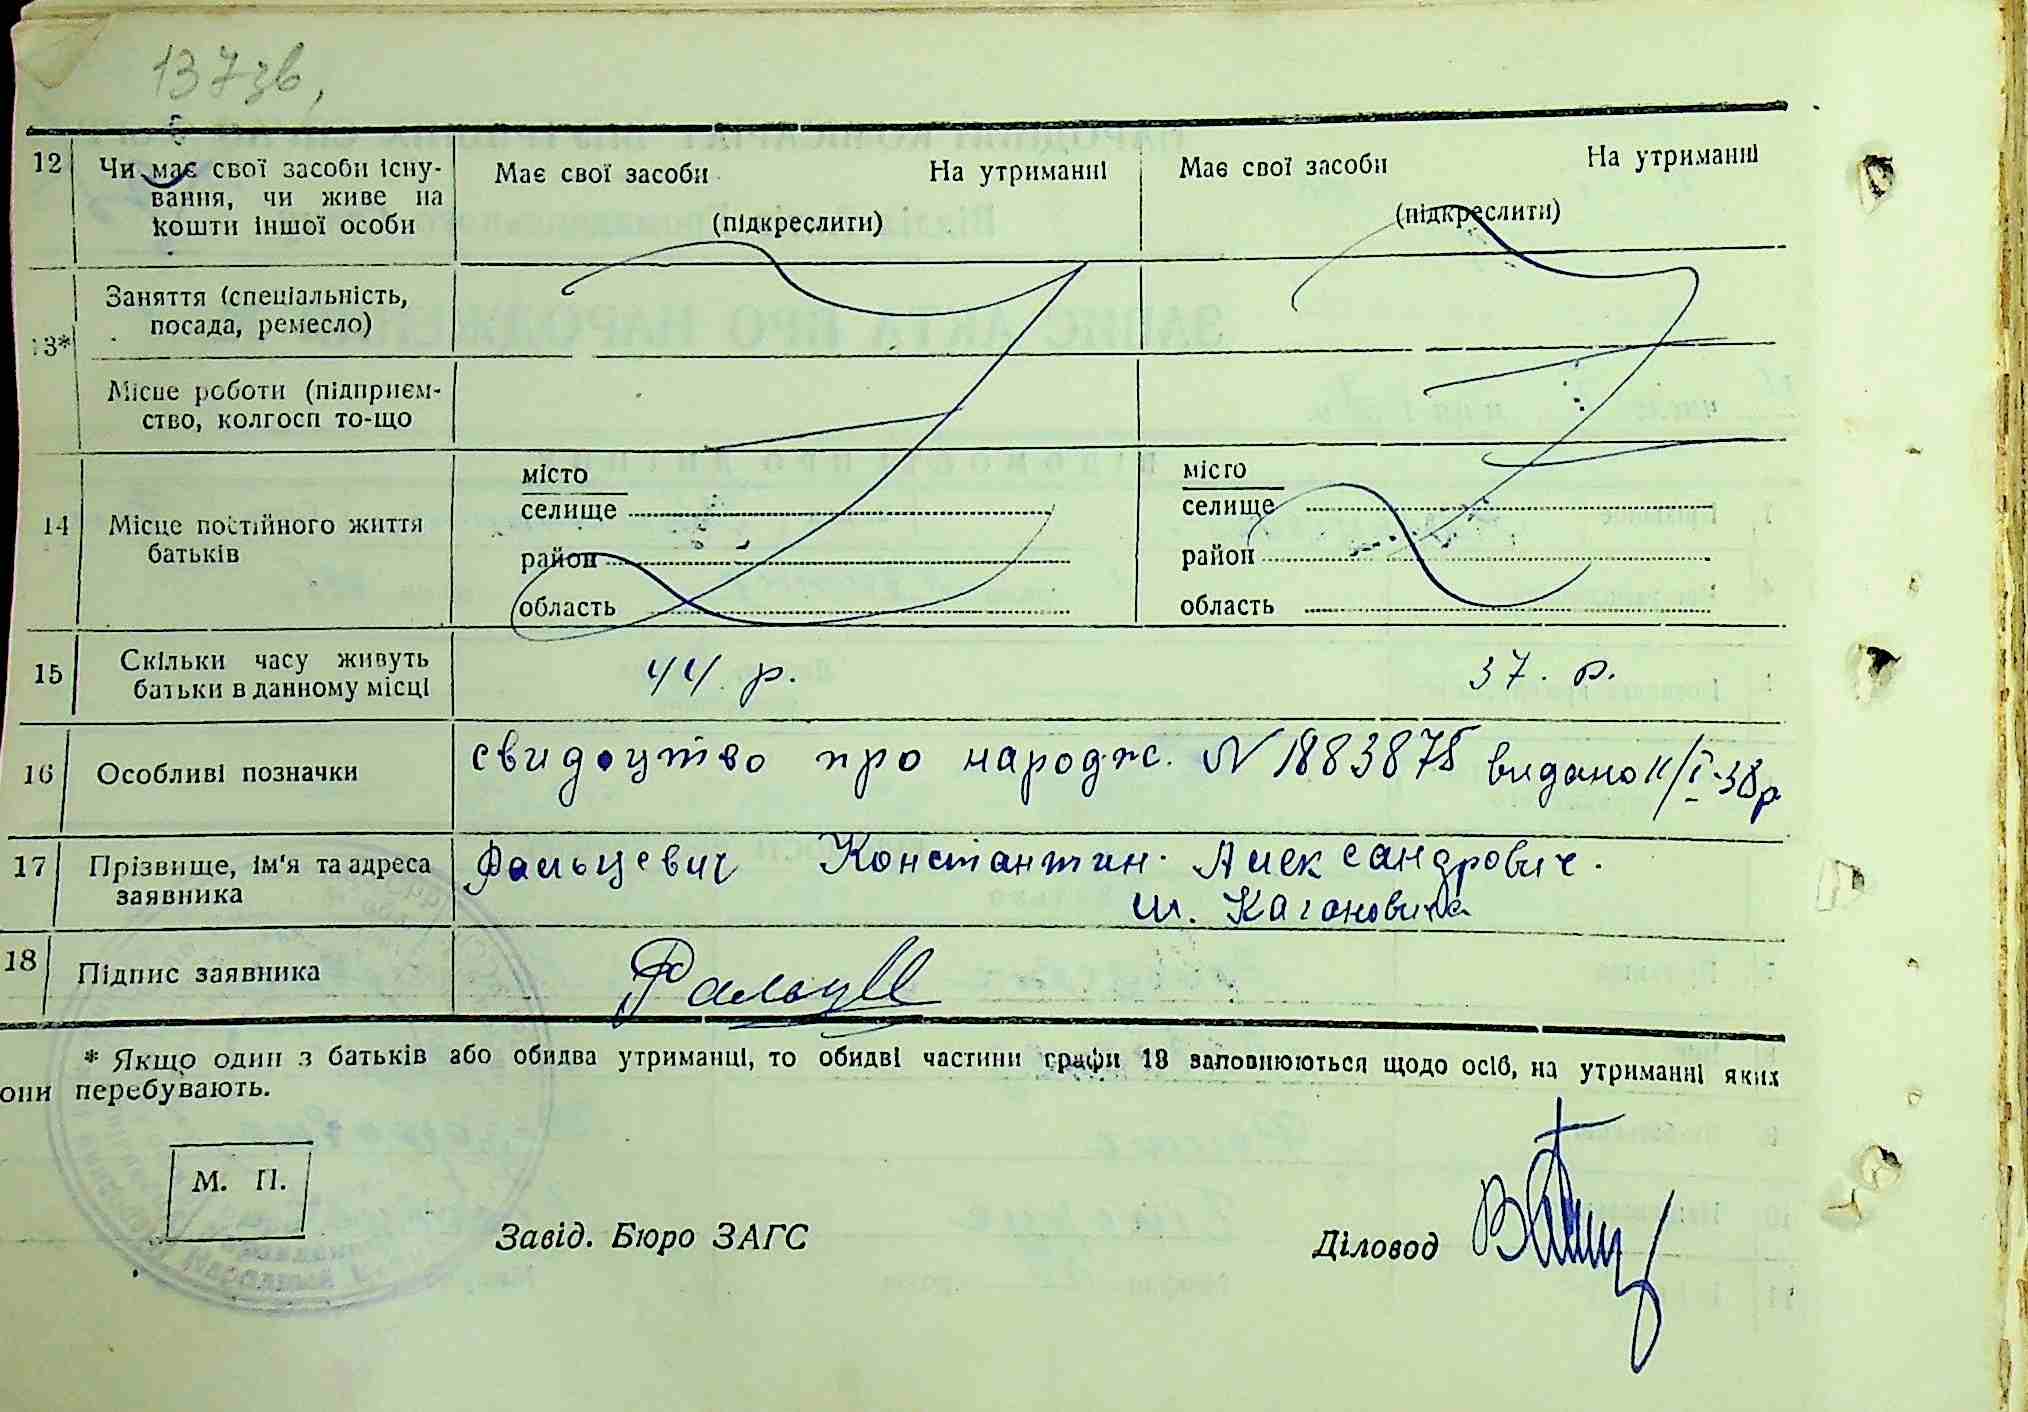 137зв,
12 Чи має свої засоби існу- Має свої засоби На утриманні Має свої засоби На утриманні
вання, чи живе на
кошти іншої особи (підкреслити) (підкреслити)
13* Заняття (спеціальність,
посада, ремесло)
Місце роботи (підприєм-
ство, колгосп то-що
місто місто
14 Місце постійного життя селище селище
батьків район район
область область
15 Скільки часу живуть 44 р. 37. р.
батьки в данному місці
16 Особливі позначки свидоцтво про народж. N 1883878 видано 11/I-38р
17 Прізвище, ім'я та адреса Фальцевич Константин. Александрович.
заявника Кагановича
18 Підпис заявника Фальц
* Якщо один з батьків або обидва утриманці, то обидві частини графи 13 заповнюються щодо осіб, на утриманні яких
они перебувають.
М. П.
Завід. Бюро ЗАГС Діловод